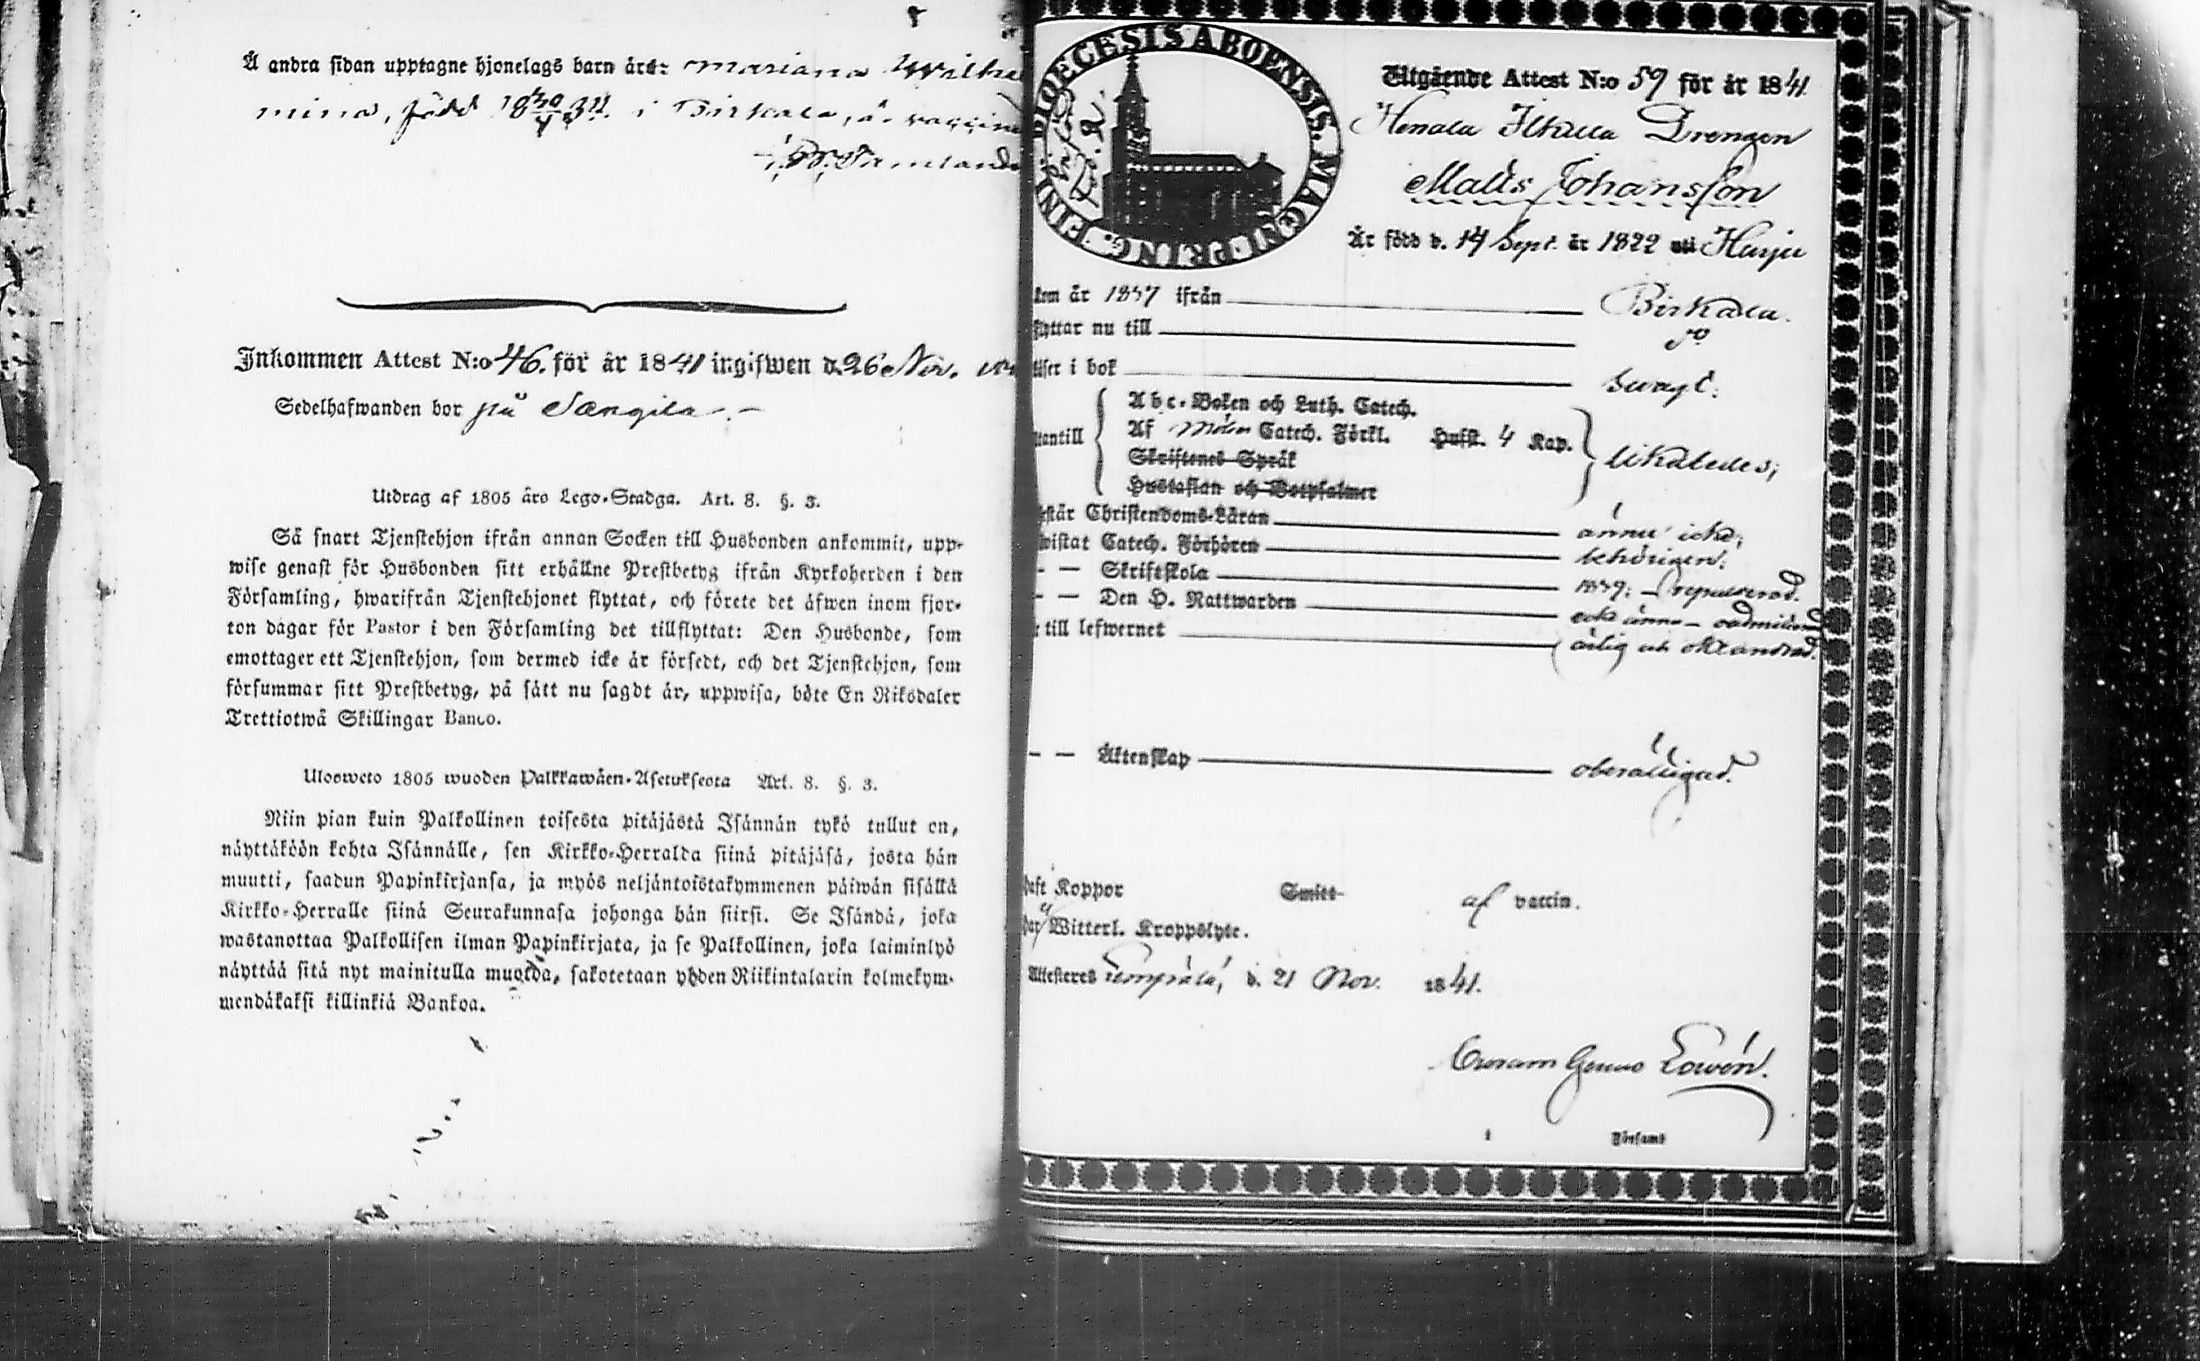 Å andra sidan upptagne hjonelags barn äro: Mariana Wilhel
mina, född i Birkala, är vaccine
Inkommen Attest N:o 46. för år 1841 ingifwen d. 26 Nov.
Sedelhafwanden bor på Sængilä.
Utdrag af 1805 års Lego-Stadga. Art. 8. §. 3.
Så snart Tjenstehjon ifrån annan Socken till Husbonden ankommit, upp-
wise genast för Husbonden sitt erhållne Prestbetyg ifrån Kyrkoherden i den
Församling, hwarifrån Tjenstehjonet flyttat, och förete det äfwen inom fjor-
ton dagar för Pastor i den Församling det tillflyttat: Den Husbonde, som
emottager ett Tjenstehjon, som dermed icke är försedt, och det Tjenstehjon, som
försummar sitt Prestbetyg, på sätt nu sagdt är, uppwisa, böte En Riksdaler
Trettiotwå Skillingar Banco.
Ulosweto 1805 wuoden Palkkawäen-Asetuksesta Art. 8. §. 3.
Niin pian kuin Palkollinen toisesta pitäjästä Isännän tykö tullut on,
näyttäköön kohta Isännälle, sen Kirkko-Herralda siinä pitäjäsä, josta hän
muutti, saadun Papinkirjansa, ja myös neljäntoistakymmenen päiwän sisällä
Kirkko-Herralle siinä Seurakunnasa johonga hän siirsi. Se Isändä, joka
wastanottaa Palkollisen ilman Papinkirjata, ja se Palkollinen, joka laiminlyö
näyttää sitä nyt mainitulla muotoa, sakotetaan yhden Riikintalarin kolmekym-
mendäkaksi killinkiä Bankoa.
DIOECESIS ABOENSIS. MAGNI PRINC. FINL
Utgående Attest N:o 59 för år 1841
Henala Ilkala Drengen
Matts Johansson
Är född d. 14 Sept. år 1822 uti Harju
kom år 1837 ifrån Birkala.
flyttar nu till do
läser i bok swagt.
utantill
Abc-Boken och Luth. Catech.
Af Möllers Catech. Förkl. Hufst. 4 Kap.
Skriftenes Språk
Hustaflan och Botpsalmer
likaledes;
förstår Christendoms-Läran ännu icke;
bewistat Catech. Förhören behörigen;
— — Skriftskola 1839; repulserad.
— — Den H. Nattwarden
till lefwernet ärlig och oklandrad.
— — Äktenskap oberyktigad.
haft Koppor Smitt- af vaccin.
har Witterl. Kroppslyte.
Attesteras Lempäälä, d. 21 Nov. 1841.
Lowén.
i Församl